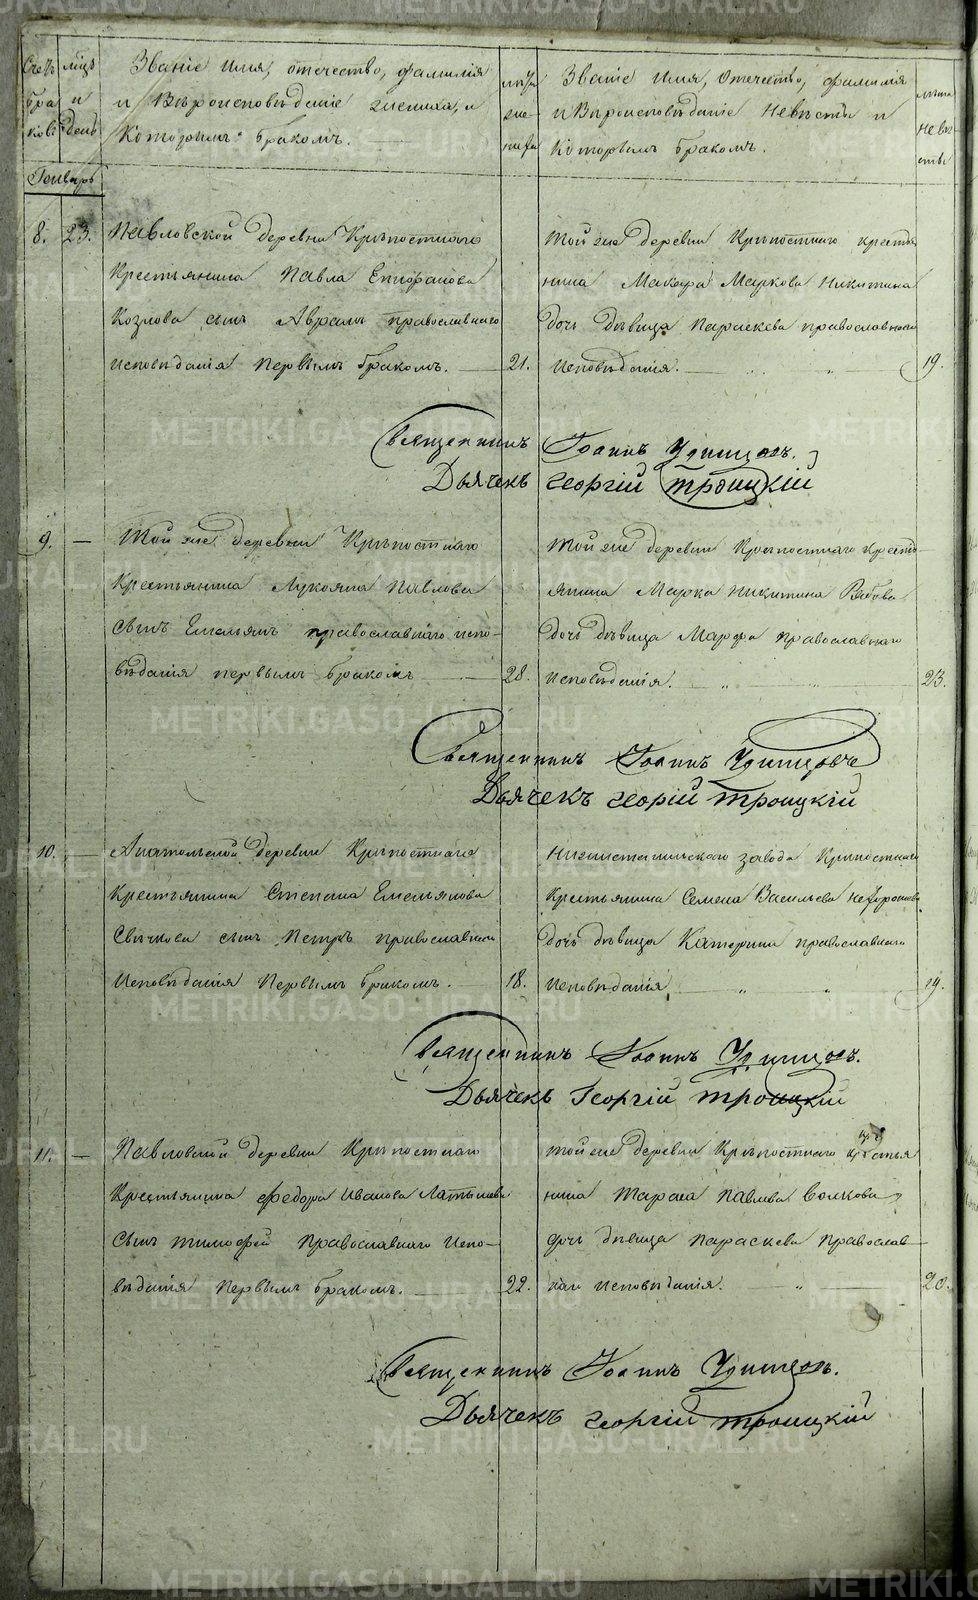 Счетъ браковъ
мѣцъ и день
Званіе Имя, отечество, фамилія
и Вѣроисповѣданіе жениха, и
Которымъ бракомъ.
лѣта жениха
Званіе Имя, Отечество, фамилія
и Вѣроисповѣданіе Невѣсты и
Которымъ бракомъ.
лѣта невѣсты
Генварь
8. 23. Павловской деревни Крѣпостнаго
Крестьянина Павла
Козлова сынъ Аврамъ православнаго
исповѣданія Первымъ бракомъ. 21.
Той же деревни Крѣпостнаго крестья
нина Макара Маркова Никитина
дочь дѣвица Параскева православнаго
Исповѣданія. 19.
Священникъ Іоаннъ Удинцовъ.
Дьячекъ Георгій Троицкій
9. — Той же деревни Крѣпостнаго
Крестьянина Лукояна Павлова
сынъ Емельянъ православнаго испо-
вѣданія первымъ бракомъ 28.
Той же деревни Крѣпостнаго кресть-
янина Марка Никитина Рябова
дочь дѣвица Марфа Православнаго
Исповѣданія. 23.
Священникъ Іоаннъ Удинцовъ
Дьячекъ Георгій Троицкій
10. — Анатольской деревни Крѣпостнаго
Крестьянина Степана Емельянова
Свѣчкова сынъ Петръ православнаго
Исповѣданія Первымъ бракомъ. 18.
Нижнетагильскаго завода Крѣпостнаго
Крестьянина Семена Васильева
дочь дѣвица Катерина православнаго
Исповѣданія 19.
Священникъ Іоаннъ Удинцовъ.
Дьячекъ Георгій Троицкій
11. — Павловской деревни Крѣпостнаго
Крестьянина Федора Иванова Латышева
сынъ Тимофей Православнаго Испо-
вѣданія Первымъ бракомъ. 22.
той же деревни Крѣпостнаго крестья
нина Тараса Павлова Волкова,
дочь дѣвица Параскева Православ-
наго исповѣданія. 20.
Священникъ Іоаннъ Удинцовъ.
Дьячекъ Георгій Троицкій
METRIKI.GASO-URAL.RU